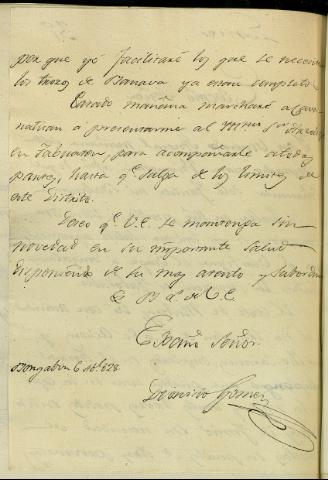 por que yo facilitaré los que se necesi
los trozos de Banava ya estan completos
Estado mañana marcharé a Caba
natuan a presentarme al Ylmo Sor
en Tabuaton, para acompañarle a todas
partes, hasta qe salga de los limites de
este Distrito.
Deseo qe V.E. se mantenga sin
novedad en su importante salud
disponiendo de su muy atento y subordin
Q B. L. M. de V.E.
Excmo Señor
Bongabon 6
Dionisio Gomez